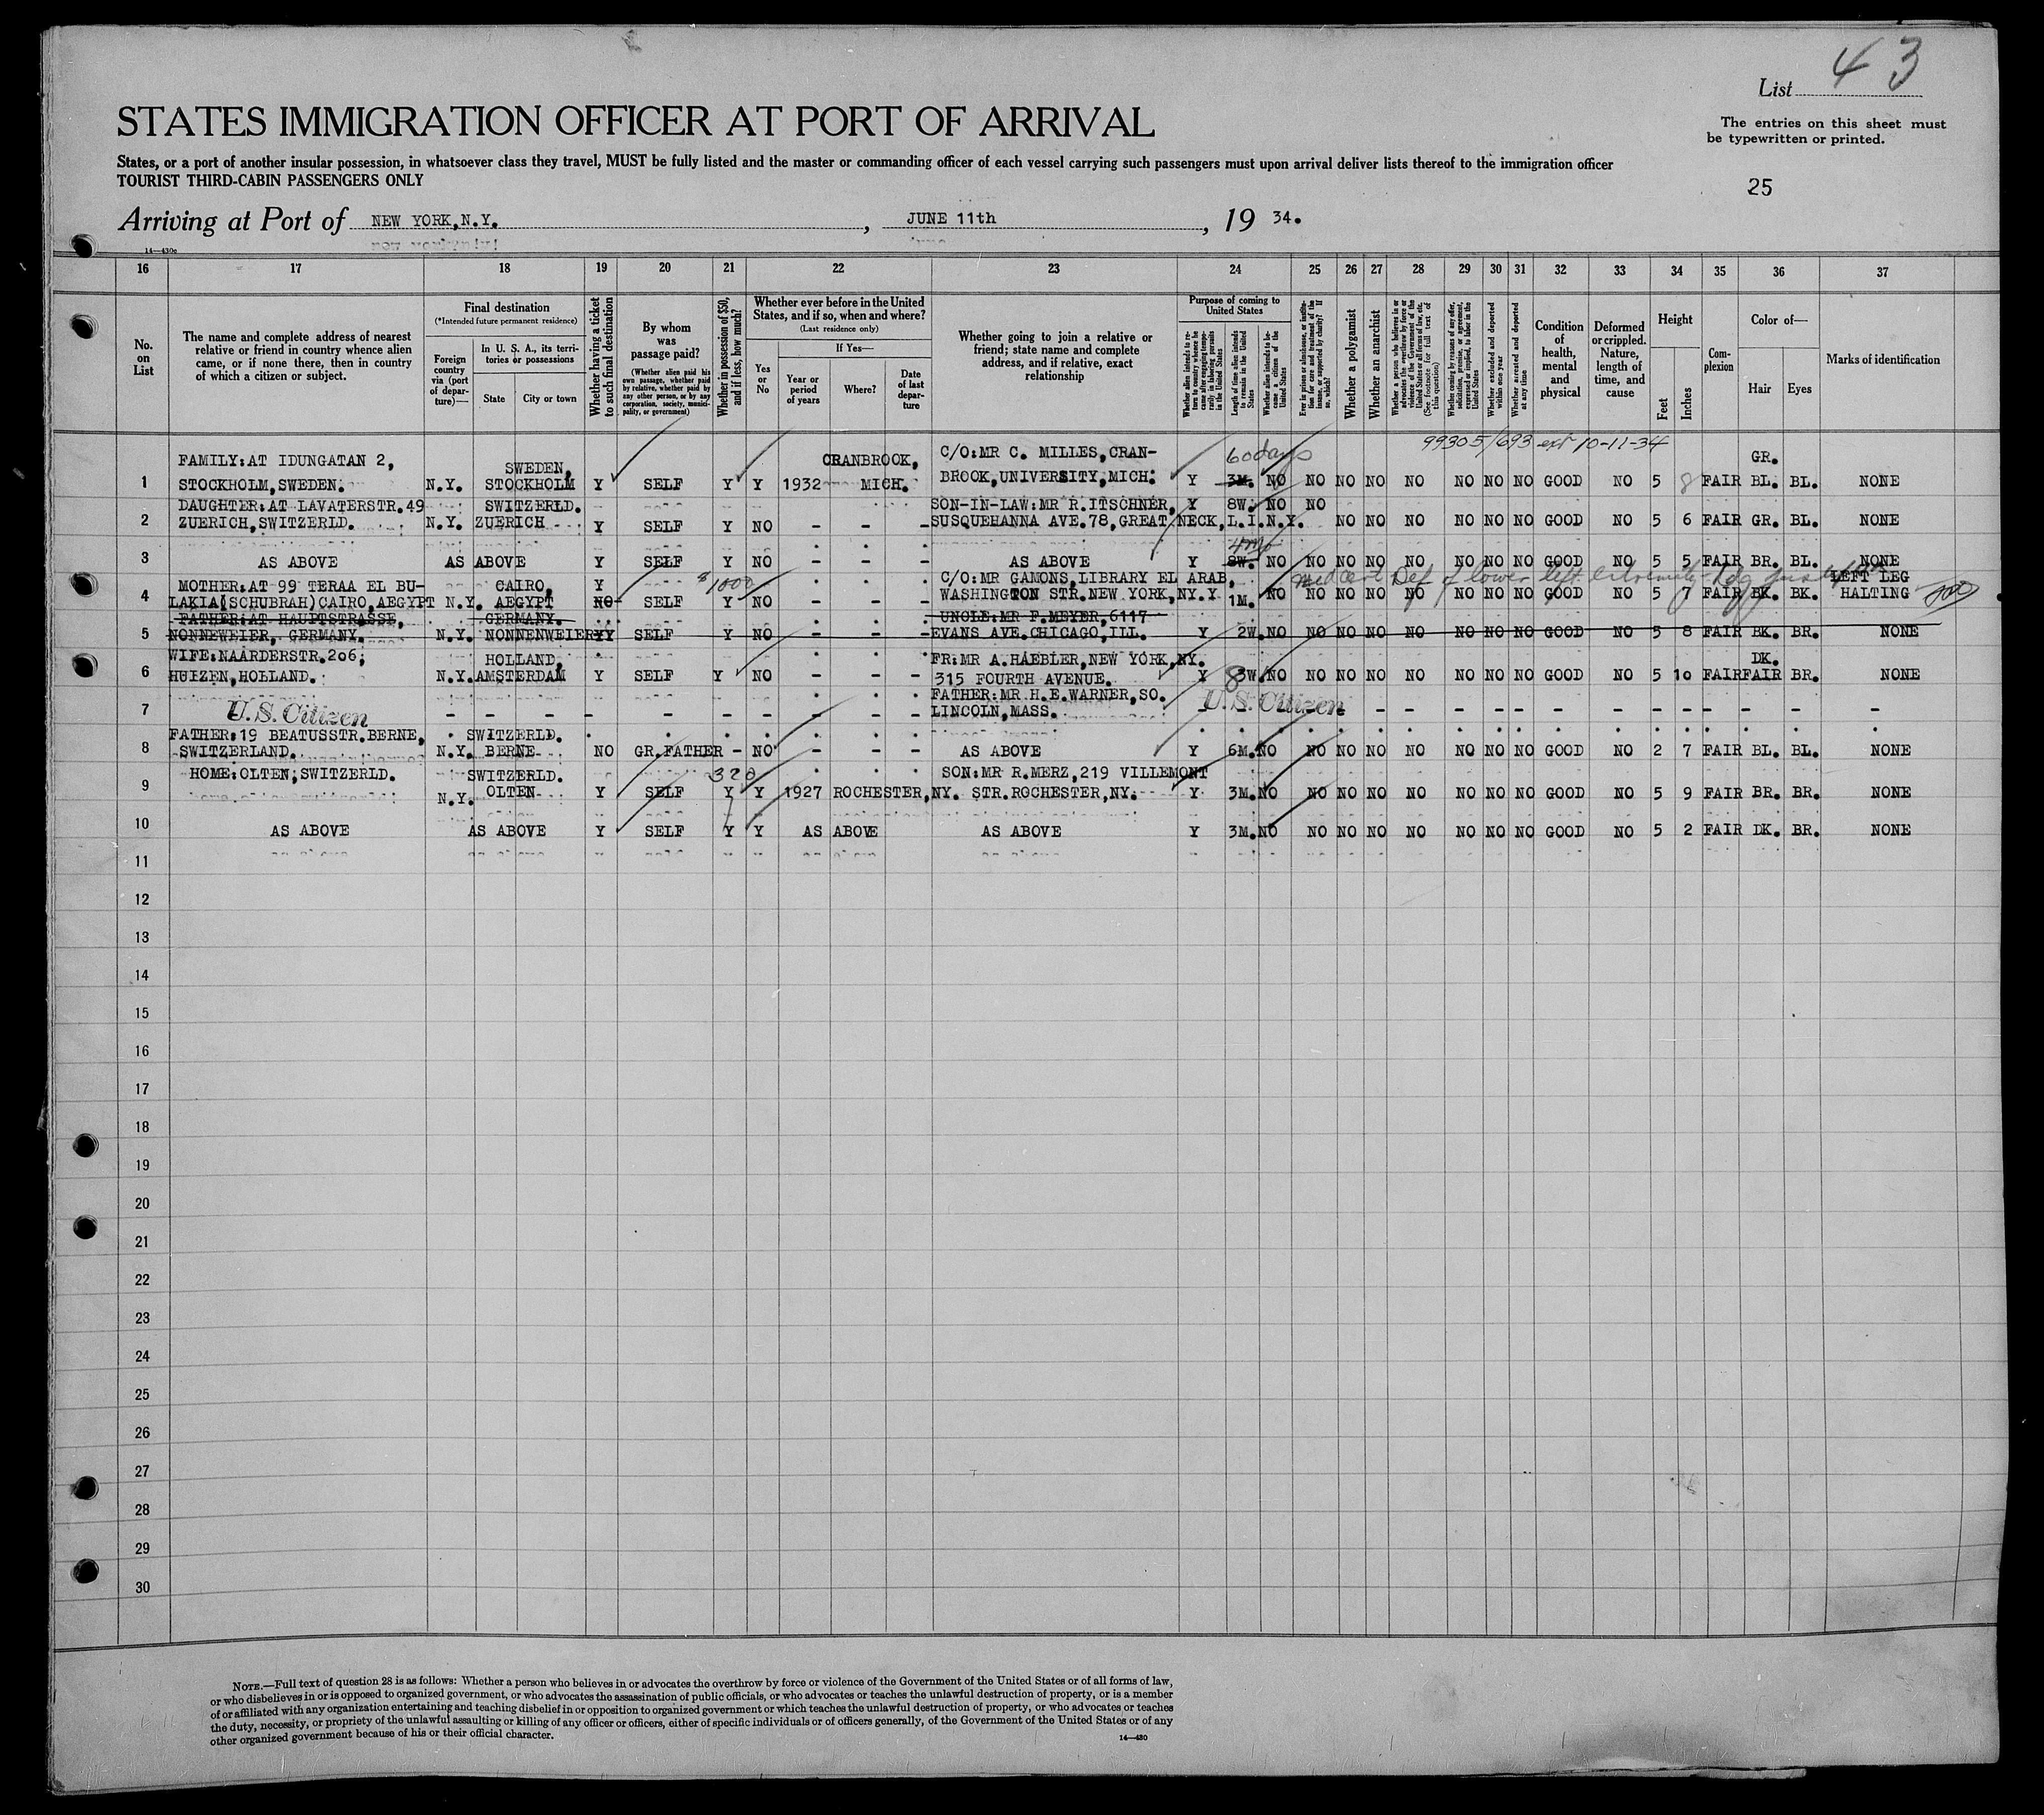 List 43
STATES IMMIGRATION OFFICER AT PORT OF ARRIVAL
The entries on this sheet must
be typewritten or printed.
States, or a port of another insular possession, in whatsoever class they travel, MUST be fully listed and the master or commanding officer of each vessel carrying such passengers must upon arrival deliver lists thereof to the immigration officer
TOURIST THIRD-CABIN PASSENGERS ONLY
25
Arriving at Port of NEW YORK,N.Y. , JUNE 11th , 19 34.
14—430c
16 17 18 19 20 21 22 23 24 25 26 27 28 29 30 31 32 33 34 35 36 37
No. on List
The name and complete address of nearest relative or friend in country whence alien came, or if none there, then in country of which a citizen or subject.
Final destination
(*Intended future permanent residence)
Foreign country via (port of departure)—
In U. S. A., its territories or possessions
State
City or town
Whether having a ticket to such final destination
By whom was passage paid?
(Whether alien paid his own passage, whether paid by relative, whether paid by any other person, or by any corporation, society, municipality, or government)
Whether in possession of $50, and if less, how much?
Whether ever before in the United States, and if so, when and where?
(Last residence only)
Yes or No
If Yes—
Year or period of years
Where?
Date of last departure
Whether going to join a relative or friend; state name and complete address, and if relative, exact relationship
Purpose of coming to United States
Length of time alien intends to remain in the United States
Whether alien intends to become a citizen of the United States
Whether a polygamist
Whether an anarchist
Whether excluded and deported within one year
Whether arrested and deported at any time
Condition of health, mental and physical
Deformed or crippled. Nature, length of time, and cause
Height
Feet
Inches
Complexion
Color of—
Hair
Eyes
Marks of identification
99305/693 ext 10-11-34
FAMILY:AT IDUNGATAN 2, SWEDEN, CRANBROOK, C/O:MR C. MILLES,CRAN- 60 days GR.
1 STOCKHOLM,SWEDEN. N.Y. STOCKHOLM Y SELF Y Y 1932 MICH. BROOK,UNIVERSITY,MICH: Y 3M. NO NO NO NO NO NO NO NO GOOD NO 5 8 FAIR BL. BL. NONE
DAUGHTER:AT LAVATERSTR.49 SWITZERLD. SON-IN-LAW:MR R.ITSCHNER, Y 8W. NO NO
2 ZUERICH,SWITZERLD. N.Y. ZUERICH Y SELF Y NO - - - SUSQUEHANNA AVE.78,GREAT NECK,L.I.N.Y. NO NO NO NO NO NO GOOD NO 5 6 FAIR GR. BL. NONE
4mo
3 AS ABOVE AS ABOVE Y SELF Y NO - - - AS ABOVE Y 8W. NO NO NO NO NO NO NO NO GOOD NO 5 5 FAIR BR. BL. NONE
MOTHER:AT 99 TERAA EL BU- CAIRO, Y $1000 C/O:MR GAMONS,LIBRARY EL ARAB, med cert Def of lower left extremity LEFT LEG
4 LAKIA(SCHUBRAH)CAIRO,AEGYPT N.Y. AEGYPT NO SELF Y NO - - - WASHINGTON STR.NEW YORK,NY. Y 1M. NO NO NO NO NO NO NO NO GOOD NO 5 7 FAIR BK. BK. HALTING
FATHER:AT HAUPTSTRASSE, GERMANY. UNCLE:MR F.MEYER,6117
5 NONNEWEIER, GERMANY. N.Y. NONNENWEIER YY SELF Y NO - - - EVANS AVE.CHICAGO,ILL. Y 2W. NO NO NO NO NO NO NO NO GOOD NO 5 8 FAIR BK. BR. NONE
WIFE:NAARDERSTR.206; HOLLAND, FR:MR A.HAEBLER,NEW YORK,NY. DK.
6 HUIZEN,HOLLAND. N.Y. AMSTERDAM Y SELF Y NO - - - 315 FOURTH AVENUE. Y 8 3W. NO NO NO NO NO NO NO NO GOOD NO 5 10 FAIR FAIR BR. NONE
FATHER:MR H.E.WARNER,SO.
7 U.S. Citizen - - - - - - - - - LINCOLN,MASS. U.S. Citizen - - - - - - - - - - - - - -
FATHER:19 BEATUSSTR.BERNE, SWITZERLD.
8 SWITZERLAND. N.Y. BERNE NO GR.FATHER - NO - - - AS ABOVE Y 6M. NO NO NO NO NO NO NO NO GOOD NO 2 7 FAIR BL. BL. NONE
HOME:OLTEN;SWITZERLD. SWITZERLD. 320 SON:MR R.MERZ,219 VILLEMONT
9 N.Y. OLTEN Y SELF Y Y 1927 ROCHESTER,NY. STR.ROCHESTER,NY. Y 3M. NO NO NO NO NO NO NO NO GOOD NO 5 9 FAIR BR. BR. NONE
10 AS ABOVE AS ABOVE Y SELF Y Y AS ABOVE AS ABOVE Y 3M. NO NO NO NO NO NO NO NO GOOD NO 5 2 FAIR DK. BR. NONE
11
12
13
14
15
16
17
18
19
20
21
22
23
24
25
26
27
28
29
30
NOTE.—Full text of question 28 is as follows: Whether a person who believes in or advocates the overthrow by force or violence of the Government of the United States or of all forms of law,
or who disbelieves in or is opposed to organized government, or who advocates the assassination of public officials, or who advocates or teaches the unlawful destruction of property, or is a member
of or affiliated with any organization entertaining and teaching disbelief in or opposition to organized government or which teaches the unlawful destruction of property, or who advocates or teaches
the duty, necessity, or propriety of the unlawful assaulting or killing of any officer or officers, either of specific individuals or of officers generally, of the Government of the United States or of any
other organized government because of his or their official character.
14—430